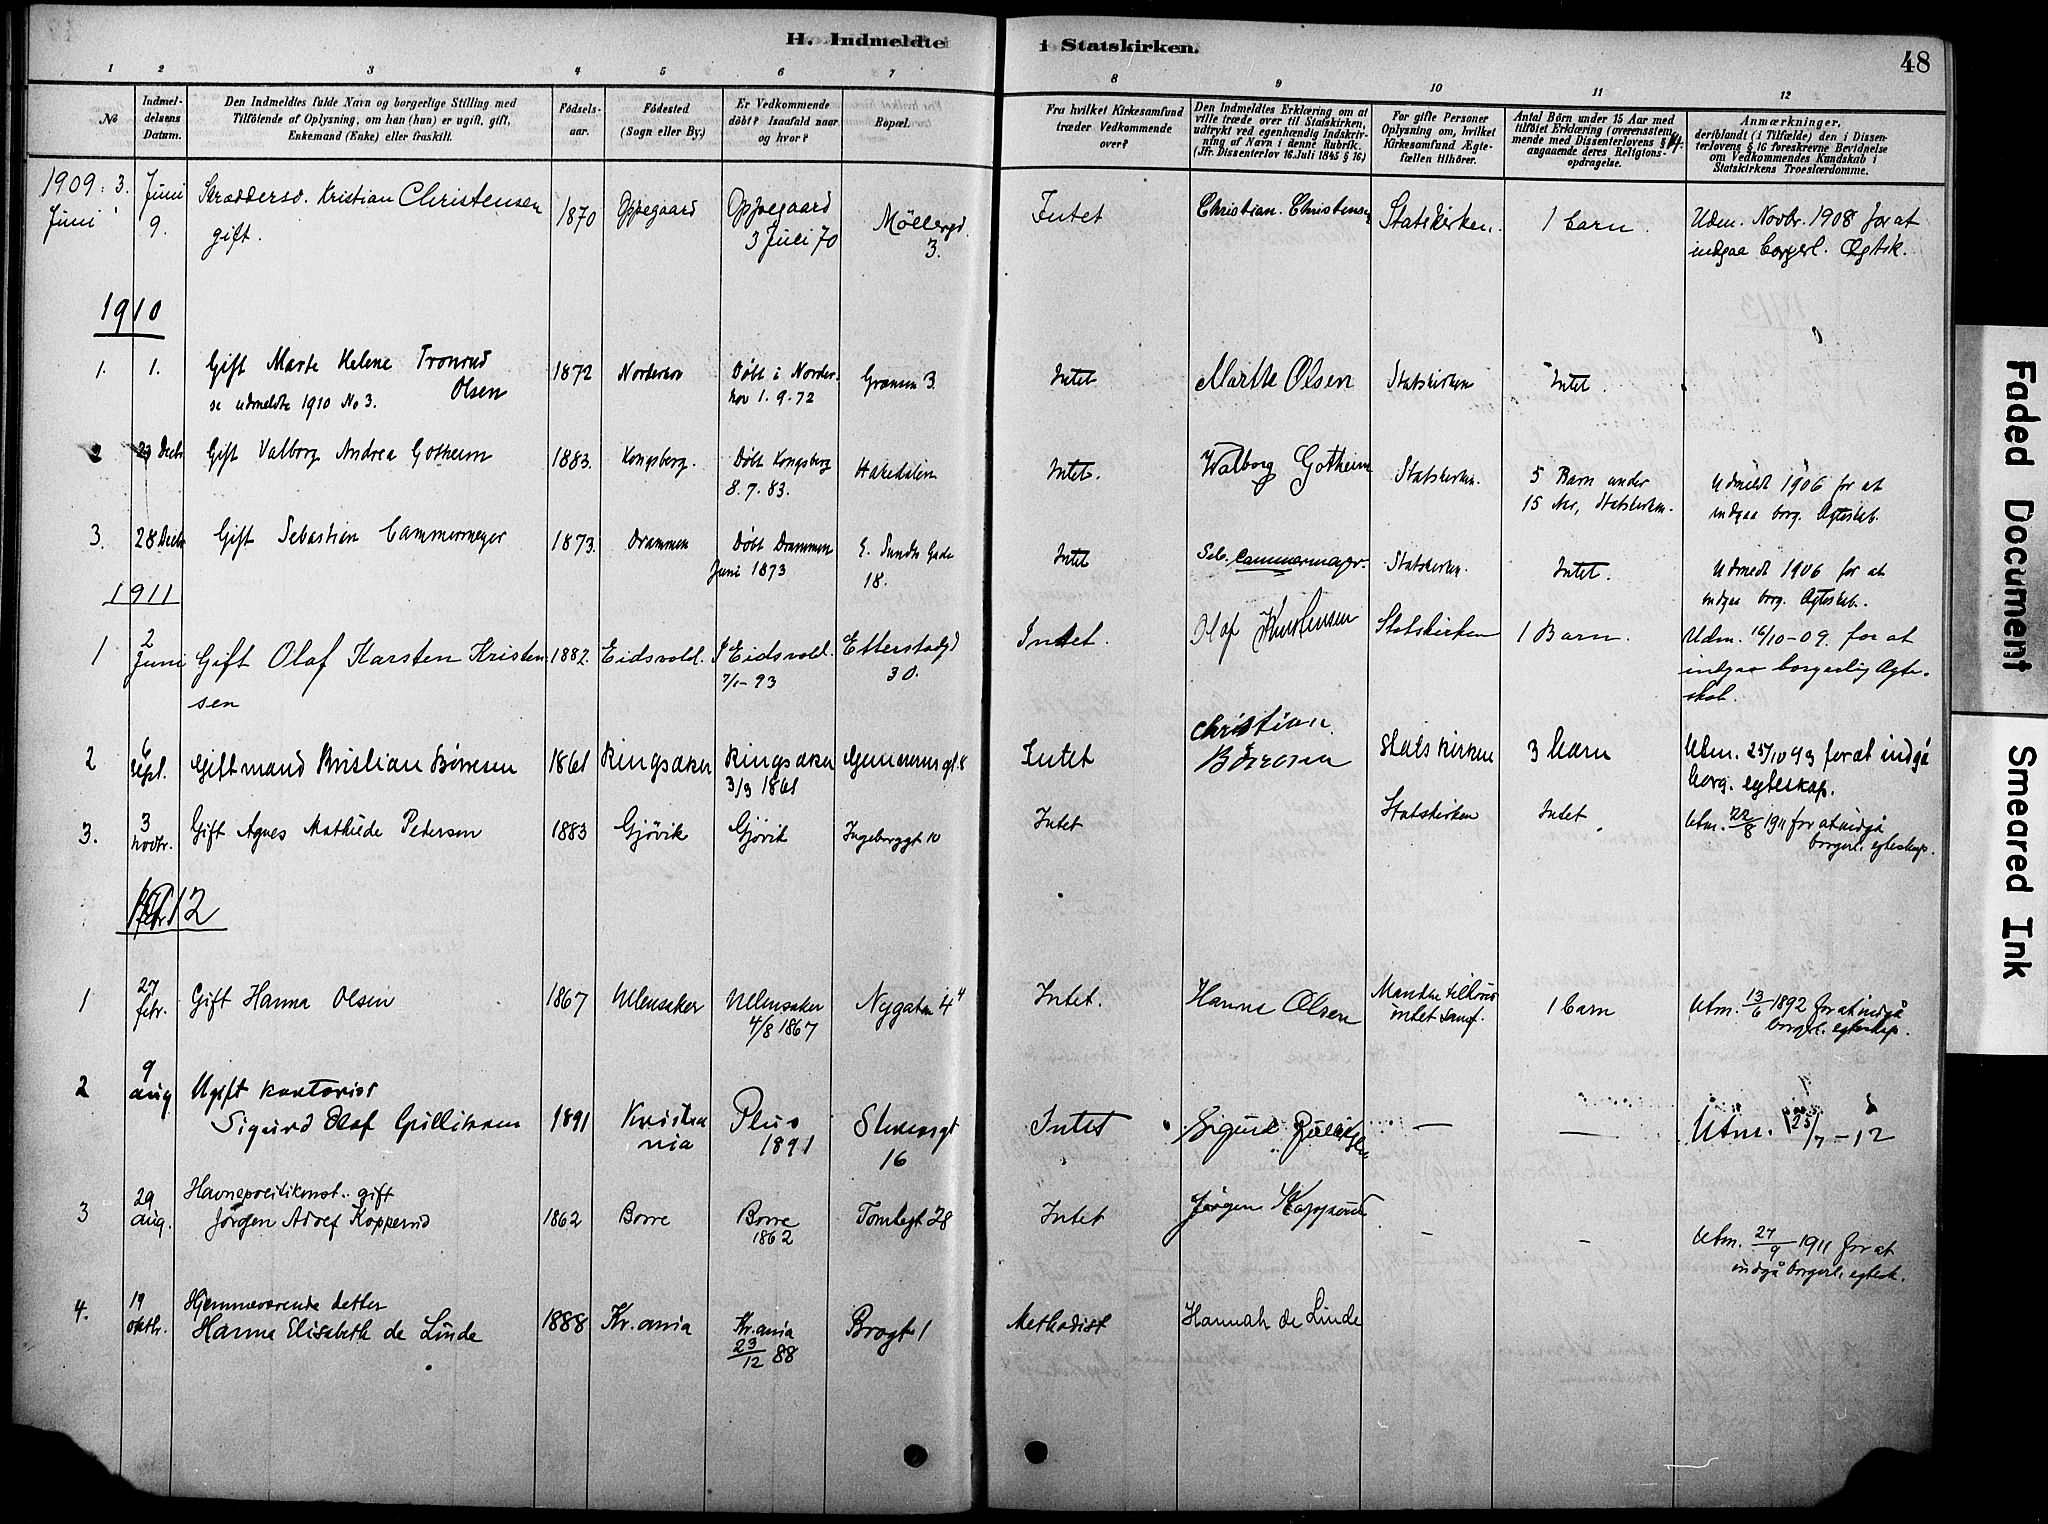 H. Indmeldte i Statskirken.
48
1 2 3 4 5 6 7 8 9 10 11 12
No
Indmel-
delsens
Datum.
Den Indmeldtes fulde Navn og borgerlige Stilling med
Tilföiende af Oplysning, om han (hun) er ugift, gift,
Enkemand (Enke) eller fraskilt.
Födsels-
aar.
Födested
(Sogn eller By.)
Er Vedkommende
döbt? Isaafald naar
og hvor?
Bopæl.
Fra hvilket Kirkesamfund
træder Vedkommende
over?
Den Indmeldtes Erklæring om at
ville træde over til Statskirken,
udtrykt ved egenhændig Indskriv-
ning af Navn i denne Rubrik.
(Jfr. Dissenterlov 16. Juli 1845 § 16)
For gifte Personer
Oplysning om, hvilket
Kirkesamfund Ægte-
fællen tilhörer.
Antal Börn under 15 Aar med
tilföiet Erklæring (overensstem-
mende med Dissenterlovens §
angaaende deres Religions-
opdragelse.
Anmærkninger,
deriblandt (i Tilfælde) den i Dissen-
terlovens § 16 foreskrevne Bevidnelse
om Vedkommendes Kundskab i
Statskirkens Troeslærdomme.
1909: 3. Juni
Juni 9.
Skræddersv. Kristian Christensen
gift.
1870
Oppegaard
Oppegaard
3 Juli 70
Möllergd.
3.
Intet
Christian. Christensen
Statskirken.
1 barn.
Udm. Novbr. 1908 for at
indgaa borgerl. Ægtsk.
1910
1. 1.
Gift Marte Helene Tronrud
Olsen
se udmeldte 1910 No 3.
1872
Norderhov
Döbt i Norder-
hov 1. 9. 72
Grænsen 3.
Intet
Marthe Olsen
Statskirken
Intet.
2 Decbr
Gift Valborg Andrea Gotheim
1883.
Kongsberg.
Döbt Kongsberg
8. 7. 83.
Haredalen
Intet.
Walborg Gotheim
Statskirken.
5 Barn under
15 Aar, Statskirken.
Udmeldt 1906 for at
indgaa borg. Ægteskab.
3. 28 Decbr
Gift Sebastian Cammermeyer
1873.
Drammen
Döbt Drammen
Juni 1873
E. Sundts Gade
18.
Intet
Seb. Cammermeyer.
Statskirken.
Intet.
Udmeldt 1906 for at
indgaa borg. Ægteskab.
1911
1 2 Juni
Gift Olaf Karsten Kristen
sen
1882.
Eidsvold.
I Eidsvold.
7/1-93
Etterstadgd
30.
Intet.
Olaf Kristensen
Statskirken
1 Barn.
Udm. 16/10-09. for at
indgaa borgerlig Ægte-
skab.
2 6 Sept.
Gift mand Kristian Börresen
1861
Ringsaker
Ringsaker
3/3 1861
Intet
Christian
Statskirken
3 barn
Utm. 25/10 93 for at indgå
borg. egteskap.
3. 3 novbr.
Gift Agnes Mathilde Petersen
1883
Gjövik
Gjövik
Ingeborggt 10
Intet
Statskirken
Intet
Utm. 22/8 1911 for at indgå
borgerl. egteskap.
1912
1 27 febr.
Gift Hanna Olsen
1867
Ullensaker
Ullensaker
4/8 1867
Nygaten 4
Intet.
Hanna Olsen
Manden tilhörer
intet samf.
1 barn
Utm. 13/6 1892 for at indgå
borgerl. egteskap.
2 9 aug
Ugift kontorist
Sigurd Olaf Gulliksen
1891
Kristia
nia
Pius
1891
Stenersgt
16
Intet
Sigurd Gulliksen
—
—
Utm. 25/7-12
3 29 aug.
Havnepolitikonst. gift
Jörgen Adolf Kopperud
1862
Borre
Borre
1862
Tomtegt 28
Intet
Jörgen Kopperud
-
-
Utm. 27/9 1911 for at
indgå borgerl. egtesk.
4. 19 oktbr.
Hjemmeværende datter
Hanna Elisabeth de Linde
1888
Kr.ania
Kr.ania
23/12 88
Brogt 1
Methodist
Hannah de Linde
Faded Document
Smeared Ink